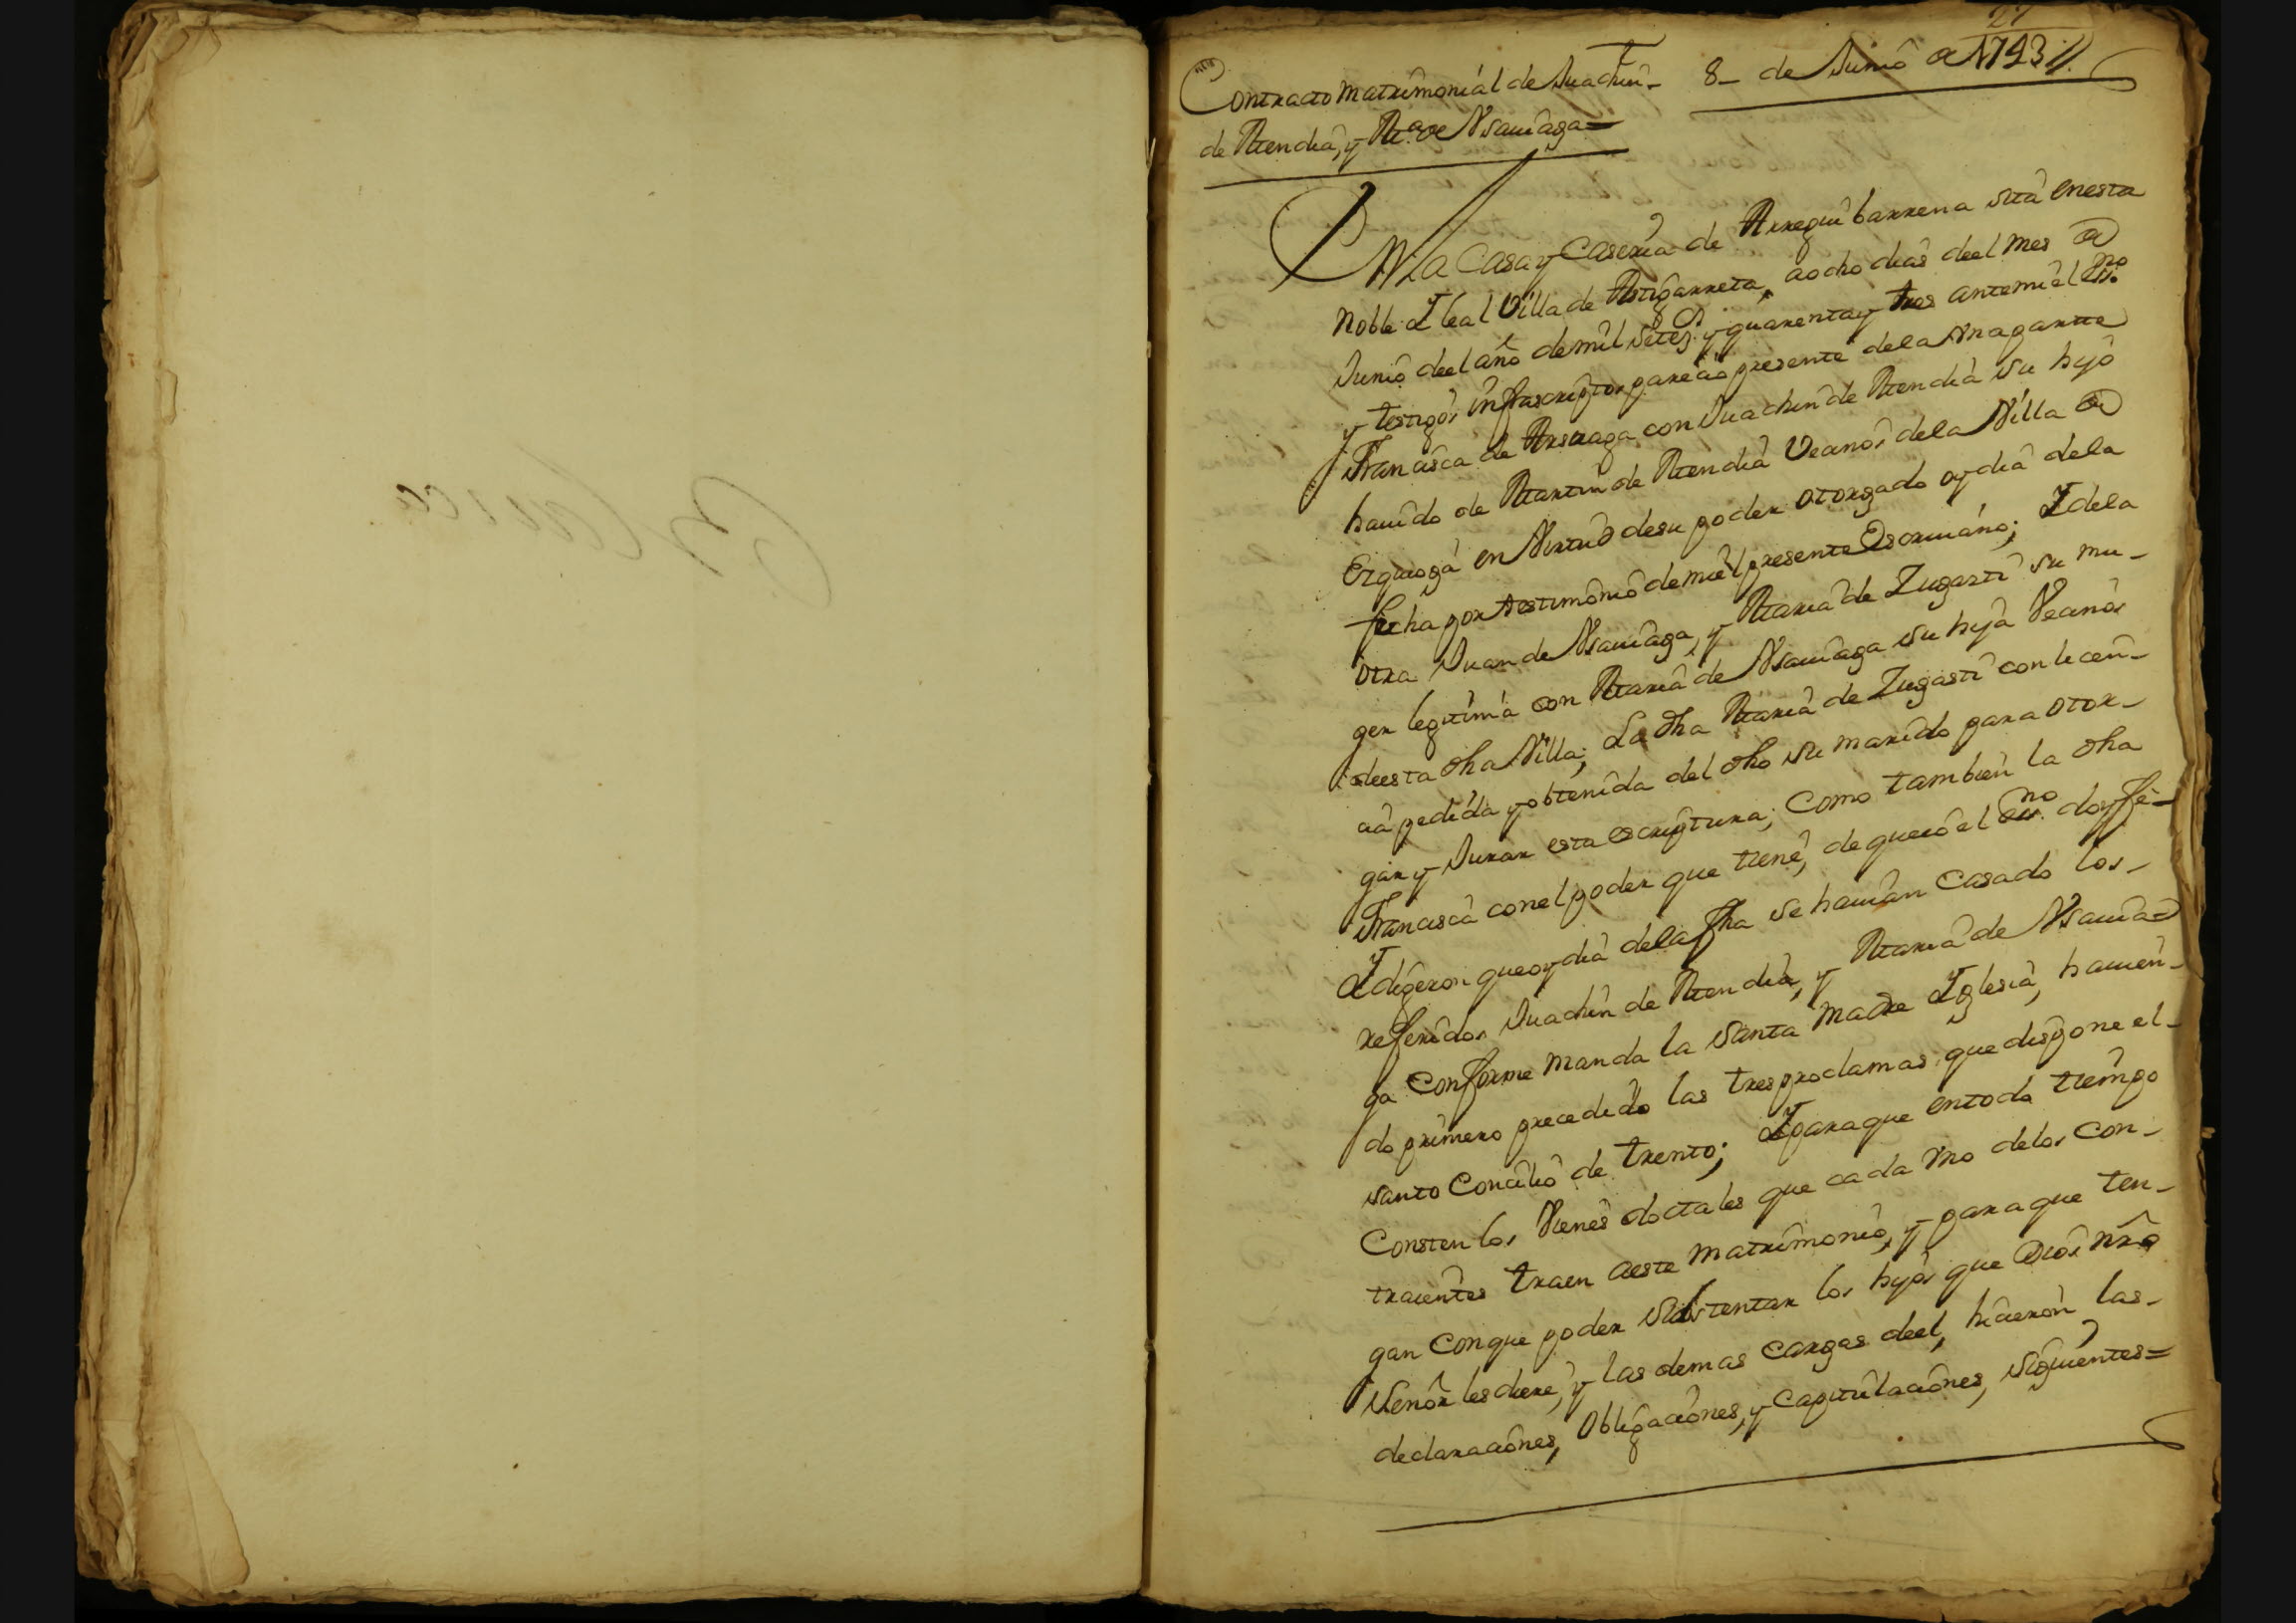 Blanco
27
Contracto matrimonial de Juachin - 8 - de Junio de 1743 //.
de Mendia, y Ma. de Usauiaga =
EN La Casa y Caseria de Arregui barrena sita enesta
Noble Y leal Villa de Astigarreta, aocho dias deel mes de
Junio deel año demil setezs. y quarentay tres antemi el Essno.
y testigos infrascriptos parecio presente dela Una parte
Francisca de Arsuaga con Juachin de Mendia su hijo
hauido de Martin de Mendia Vecinos dela Villa de
Ezquioga en Virtud desu poder otorgado oy dia dela
fecha por testimonio demi el presente Escriuano; Y dela
otra Juan de Usauiaga, y Maria de Zugasti su mu-
ger legitima con Maria de Usauiaga su hija Vecinos
deesta dha Villa; La dha Maria de Zugasti con licen-
cia pedida y obtenida del dho su marido para otor-
gar y Jurar esta escriptura; Como tambien la dha
Francisca conel poder que tiene, de queio el Essno. doy fe=
Y digeron queoy dia dela fha se hauian Casado los -
referidos Juachin de Mendia, y Maria de Usauia=
ga Conforme manda la Santa Madre Yglesia, hauien-
do primero precedido las tres proclamas que dispone el -
santo Concilio de trento; Y paraque entodo tiempo
Consten los Vienes doctales que cada Uno delos Con-
traientes traen aeste matrimonio, y - paraque ten-
gan Conque poder sustentar los hijos que Dios nro
Señor les diere, y las demas cargas deel, hicieron las -
declaraciones, Obligaciones, y Capitulaciones, siguientes =